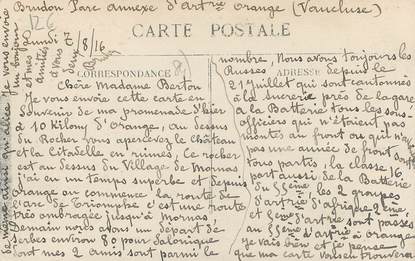 Brudon Parc annexe d'artrie Orange (Vaucluse)
CARTE POSTALE
CORRESPONDANCE
ADRESSE
/8/16
Chère Madame Berton
Je vous envoie cette carte en
Souvenir de ma promenade d'hier
à 10 Kilom d'Orange, au dessus
du Rocher vous apercevez le Château
et la Citadelle en ruines, ce rocher
est au dessus du Village de Mornas,
j'ai eu un temps superbe et depuis
Orange au commence la route de
l'arc de Triomphe c'est une route
très ombragée jusqu'à Mornas.
Demain nous avons un départ de
Serbes environ 80 pour Salonique
dont mes 2 amis sont parmi le
nombre, Nous avons toujours les
Russes depuis le
21 Juillet qui sont cantonnés
à la Sucrerie près de la gare
a la Batterie tous les sous
officiers qui n'étaient pas
montés au front ou qui n'ont
pas une année de front sont
tous partis, la classe 16,
part aussi de la Batterie
du 55eme les 2 groupes
d'artrie d'afrique 2eme
et 6eme d'artrie sont passés
au 55eme d'artrie à orange
je vais bien et je pense
que ma carte vous en trouvera
de même ainsi qu'alice Je vous envoie